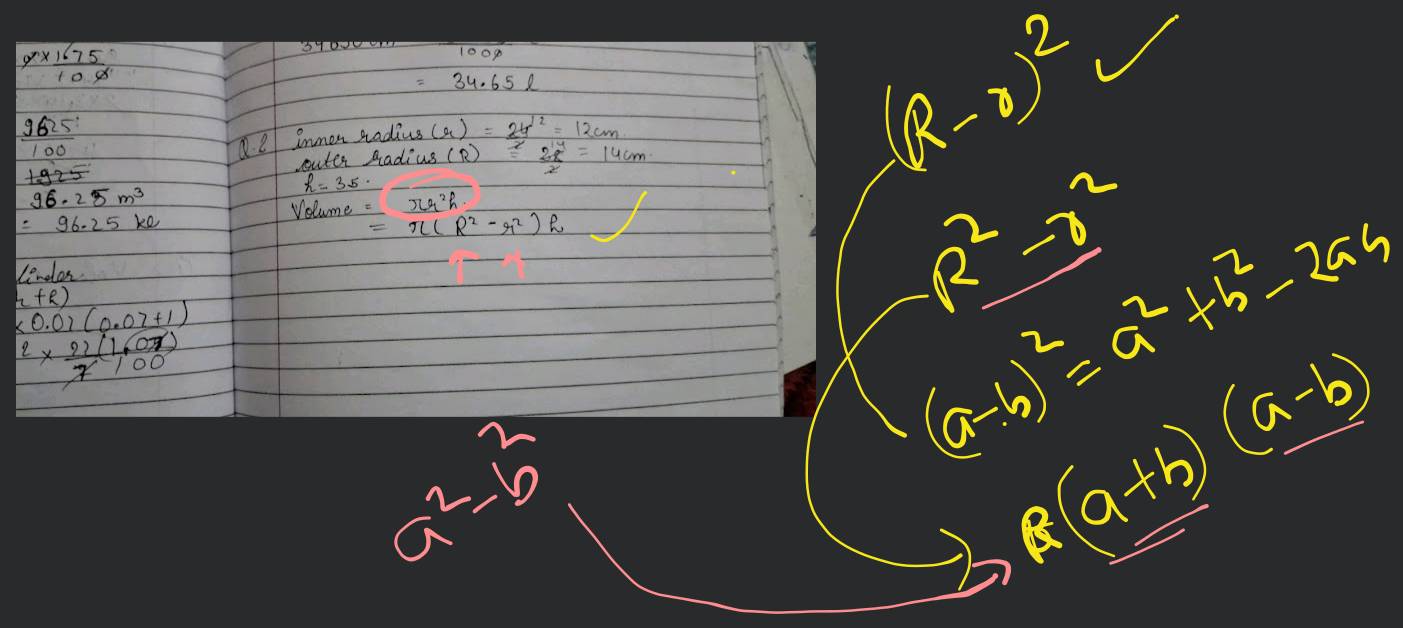 9×1675
100
9625
100
1925
96.25 m³
= 96.25 kl
linder
r+R)
×0.07(0.07+1)
2 × 22(1.07)
7 100
34650 cm
1000
= 34.65 l
Q.2 inner radius (r) = 24/2 = 12cm
outer radius (R) = 28/2 = 14cm.
h = 35.
Volume = πr²h
= π(R² - r²)h
(R-r)²
R² - r²
(a-b)² = a² + b² - 2ab
R(a+b) (a-b)
a² - b²